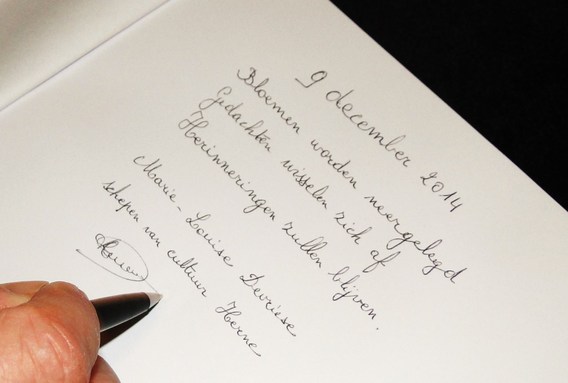 9 december 2014
Bloemen worden neergelegd
Gedachten wisselen zich af
Herinneringen zullen blijven.
Marie-Louise Devriese
schepen van cultuur Herne